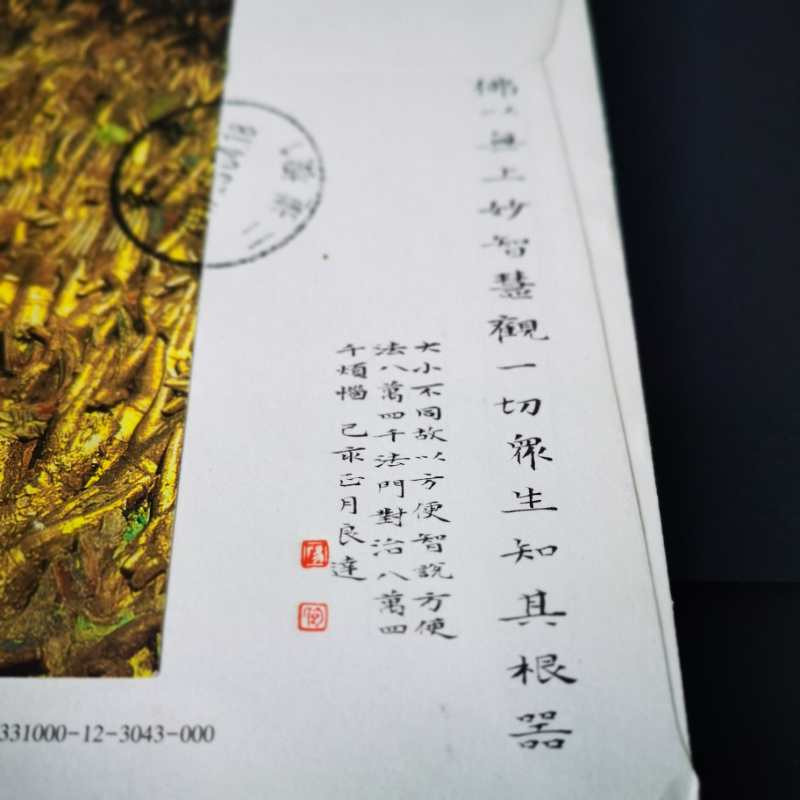 佛以無上妙智慧觀一切眾生知其根器
大小不同故以方便智說方便
法八萬四千法門對治八萬四
千煩惱 己亥正月良達
331000-12-3043-000